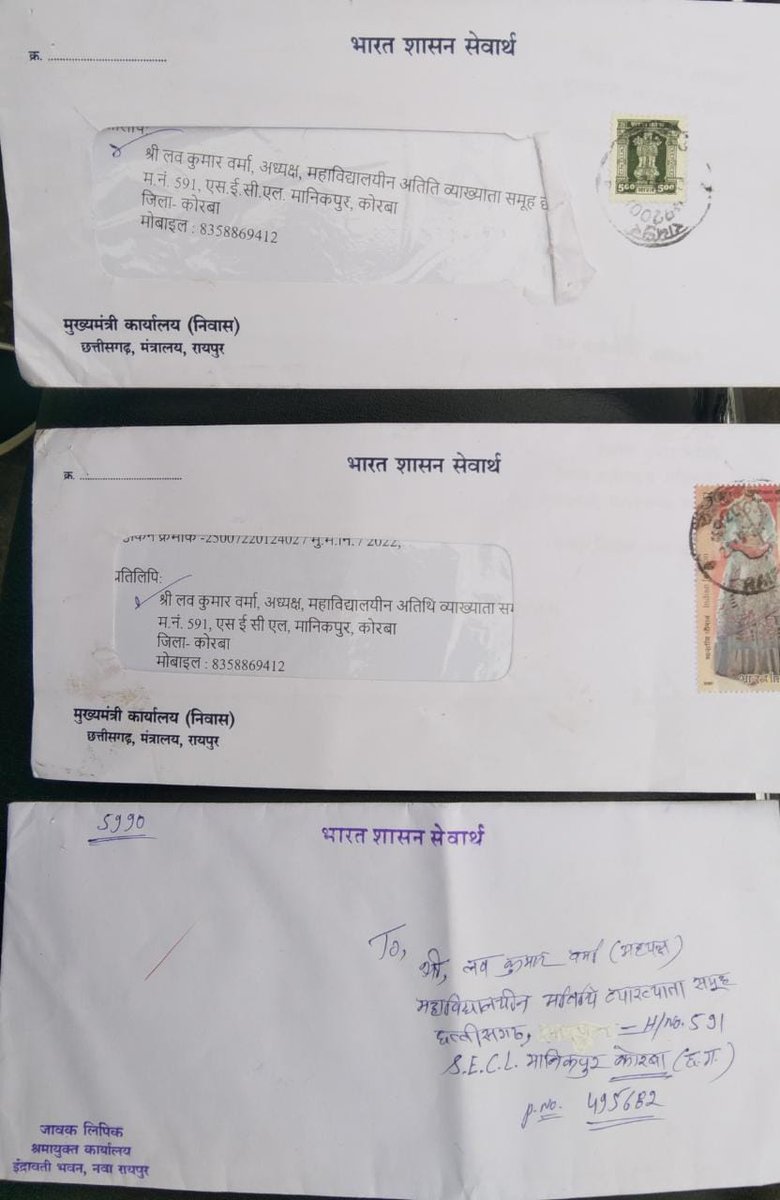 भारत शासन सेवार्थ
क्र. ..............................
श्री लव कुमार वर्मा, अध्यक्ष, महाविद्यालयीन अतिति व्याख्याता समूह
म.नं. 591, एस.ई.सी.एल. मानिकपुर, कोरबा
जिला- कोरबा
मोबाइल : 8358869412
500 भारत 500
रायपुर
मुख्यमंत्री कार्यालय (निवास)
छत्तीसगढ़, मंत्रालय, रायपुर
भारत शासन सेवार्थ
क्र. ..............................
प्रतिलिपि:
श्री लव कुमार वर्मा, अध्यक्ष, महाविद्यालयीन अतिथि व्याख्याता
म.नं. 591, एस ई सी एल, मानिकपुर, कोरबा
जिला- कोरबा
मोबाइल : 8358869412
मुख्यमंत्री कार्यालय (निवास)
छत्तीसगढ़, मंत्रालय, रायपुर
5990
भारत शासन सेवार्थ
To,
श्री, लव कुमार वर्मा (अध्यक्ष)
महाविद्यालयीन अतिथि व्याख्याता समूह
छत्तीसगढ़, = H/no. 591
S.E.C.L. मानिकपुर कोरबा (छ.ग.)
p.no. 495682
जावक लिपिक
श्रमायुक्त कार्यालय
इंद्रावती भवन, नवा रायपुर